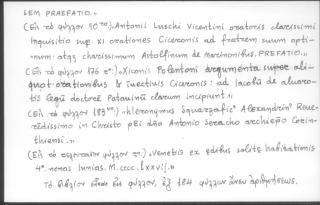 SEM PRAEFATIO.—
(Εἰς τὸ φύλλον 90ᵒⁿ:) "Antonii Luschi Vicentini oratoris clarissimi
Inquisitio sup. XI orationes Ciceronis ad fratrem suum opti-
mum: atq3 charissimum Astolfinum de Marinonibus. PREFATIO."
(Εἰς τὸ φύλλον 175 ᵒⁿ:) "Xiconis Polentoni argumenta super ali-
quot orationibus & Inuectivis Ciceronis: ad Iacobũ de aluaro-
tis legũ doctorẽ Patauinũ clarum incipiunt."
(Εἰς τὸ φύλλον 183ᵒⁿ:) "Hieronymus Squarzaficᵒ Alexandrinᵒ Reue-
rẽdissimo in Christo pBi dño Antonio Saracho archiepõ Corin-
thiensi."
(Εἰς τὸ φύλλον "Venetis ex edibus solitẽ habitationis
4° nonas Iunias. M.cccc.lxxvij."
Τὸ βιβλίον εἶναι εἰς φύλλον, ἐξ 184 φύλλων ἄνευ ἀριθμήσεως.